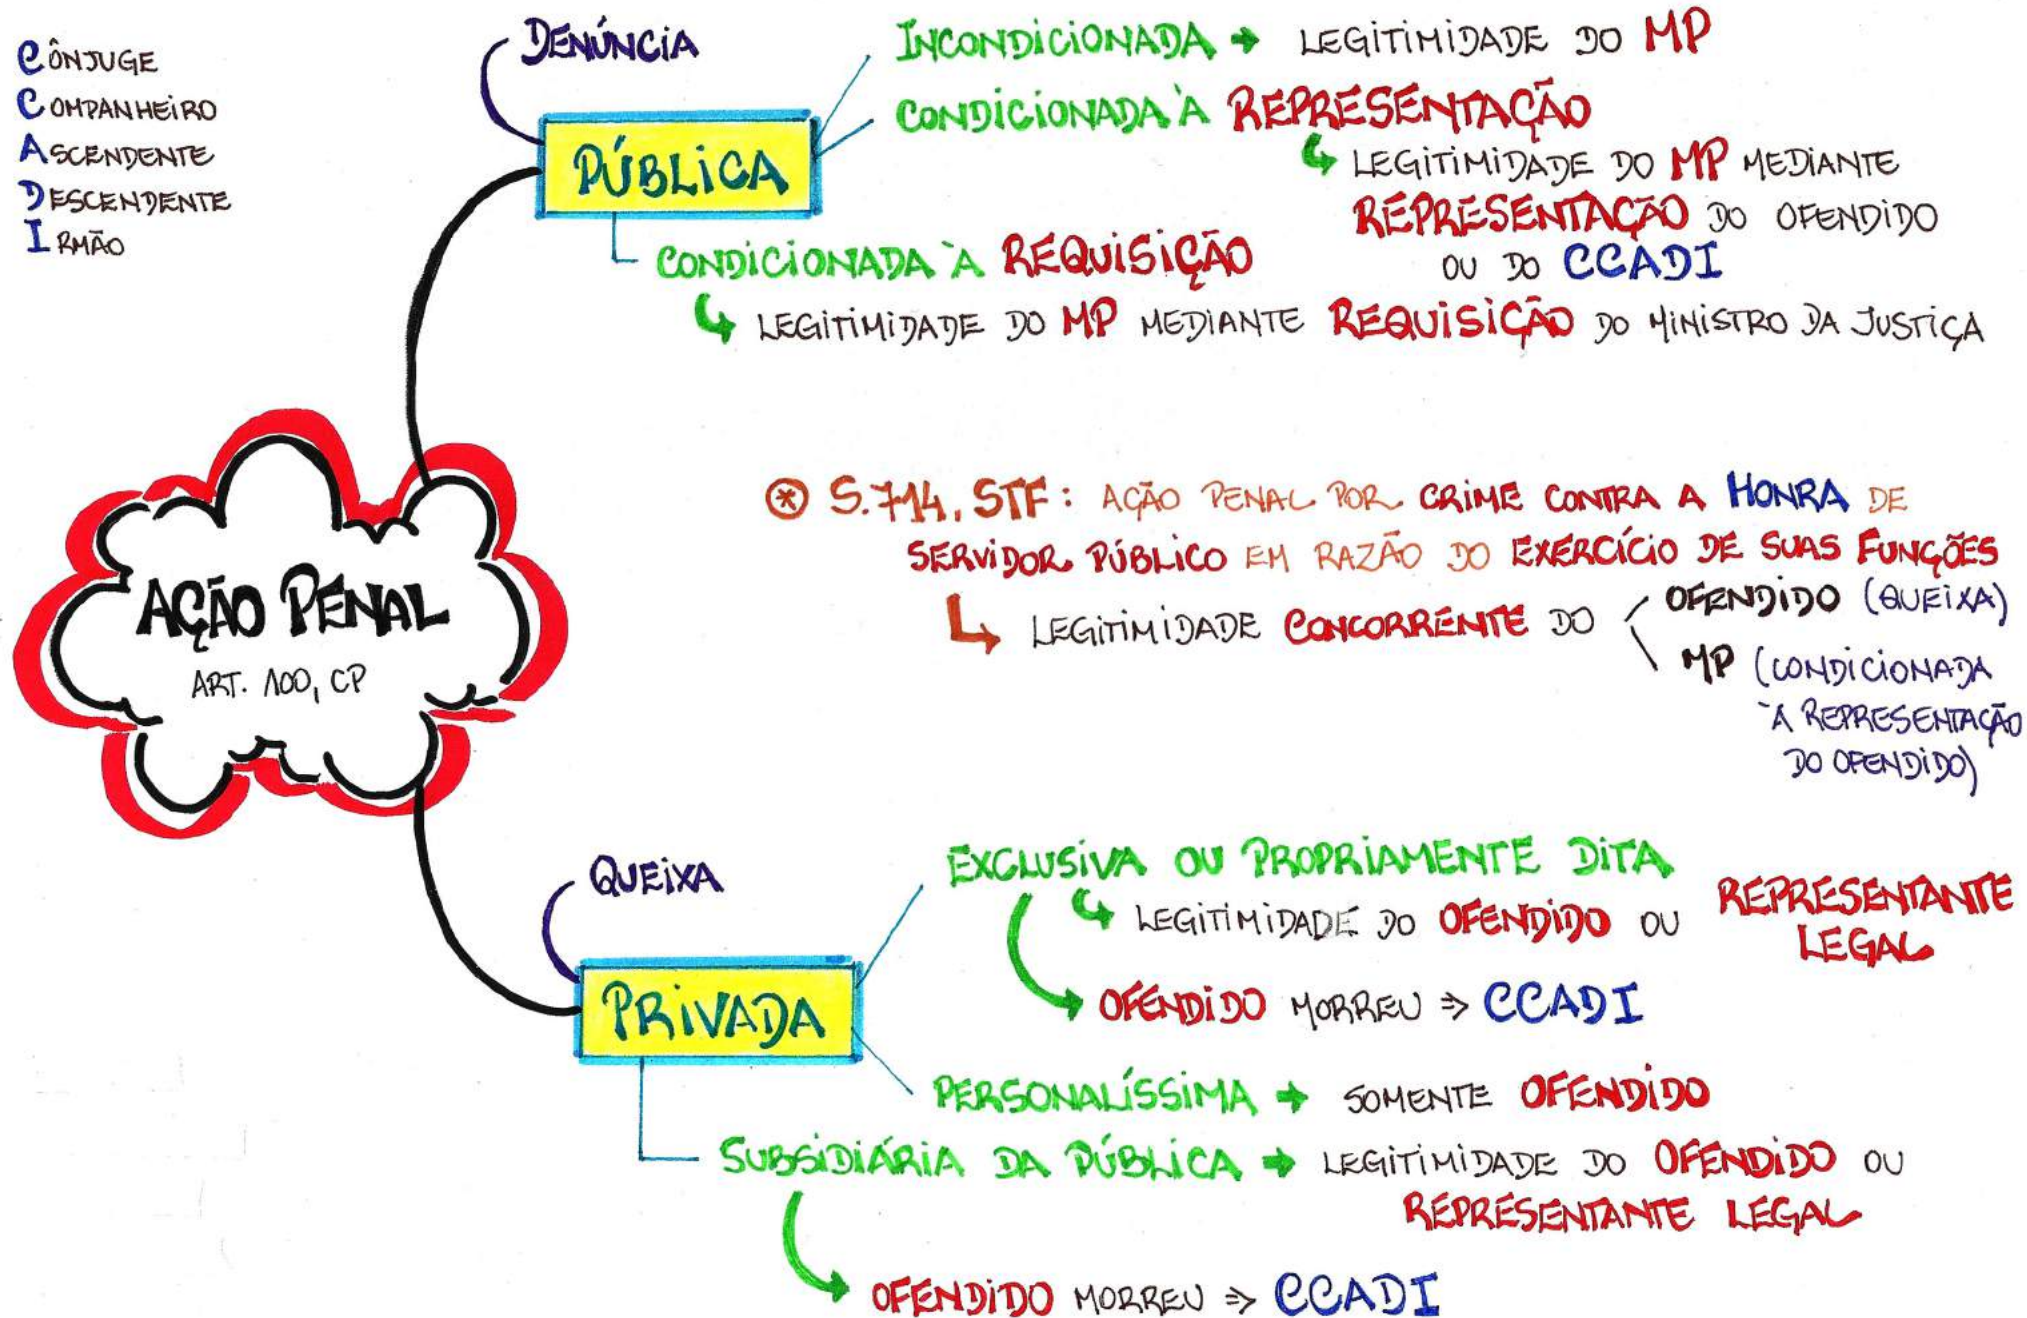 CÔNJUGE
COMPANHEIRO
ASCENDENTE
DESCENDENTE
IRMÃO
DENÚNCIA
PÚBLICA
INCONDICIONADA → LEGITIMIDADE DO MP
CONDICIONADA À REPRESENTAÇÃO
LEGITIMIDADE DO MP MEDIANTE
REPRESENTAÇÃO DO OFENDIDO
OU DO CCADI
CONDICIONADA À REQUISIÇÃO
LEGITIMIDADE DO MP MEDIANTE REQUISIÇÃO DO MINISTRO DA JUSTIÇA
AÇÃO PENAL
ART. 100, CP
* S. 714, STF: AÇÃO PENAL POR CRIME CONTRA A HONRA DE
SERVIDOR PÚBLICO EM RAZÃO DO EXERCÍCIO DE SUAS FUNÇÕES
LEGITIMIDADE CONCORRENTE DO
OFENDIDO (QUEIXA)
MP (CONDICIONADA
À REPRESENTAÇÃO
DO OFENDIDO)
QUEIXA
PRIVADA
EXCLUSIVA OU PROPRIAMENTE DITA
LEGITIMIDADE DO OFENDIDO OU REPRESENTANTE
LEGAL
OFENDIDO MORREU ⇒ CCADI
PERSONALÍSSIMA → SOMENTE OFENDIDO
SUBSIDIÁRIA DA PÚBLICA → LEGITIMIDADE DO OFENDIDO OU
REPRESENTANTE LEGAL
OFENDIDO MORREU ⇒ CCADI